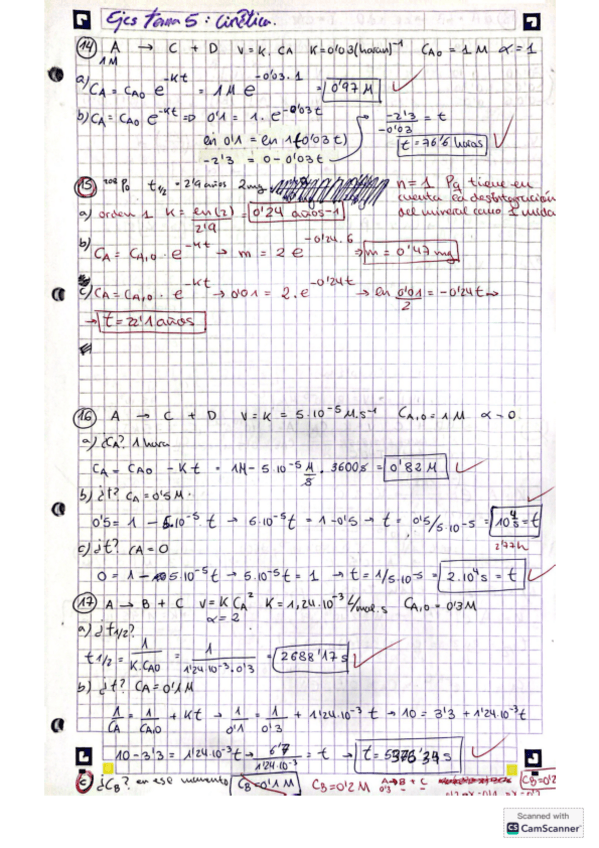 Ejcs tema 5: Cinética.
14 A → C + D V = K. CA K = 0'03 (horas)⁻¹ CA0 = 1 M α = 1
1M
a) CA = CA0 e^-Kt = 1M e^-0'03.1 = 0'97 M
b) CA = CA0 e^-Kt ⇒ 0'1 = 1. e^-0'03t
-2'3 / -0'03 = t
ln 0'1 = ln 1 + (-0'03t)
t = 76'6 horas
-2'3 = 0 - 0'03t
15 Po t1/2 = 2'9 años 2mg
n = 1 Pq tiene en
cuenta la desintegración
del mineral como
a) orden 1 K = ln(2) / 2'9 = 0'24 años-1
b) CA = CA,0 . e^-Kt → m = 2 e^-0'24.6 ⇒ m = 0'47 mg
c) CA = CA,0 . e^-Kt → 0'01 = 2. e^-0'24t → ln 0'01 / 2 = -0'24t →
→ t = 22'1 años
16 A → C + D V = K = 5.10⁻⁵ M.s⁻¹ CA,0 = 1M α = 0.
a) ¿CA? 1 hora
CA = CA0 - Kt = 1M - 5.10⁻⁵ M/s . 3600s = 0'82 M
b) ¿t? CA = 0'5 M.
0'5 = 1 - 5.10⁻⁵ t → 5.10⁻⁵ t = 1 - 0'5 → t = 0'5/5.10⁻⁵ = 10⁴ s = t
2'77h
c) ¿t? CA = 0
0 = 1 - 5.10⁻⁵ t → 5.10⁻⁵ t = 1 → t = 1/5.10⁻⁵ = 2.10⁴ s = t
17 A → B + C V = K CA² K = 1,24.10⁻³ L/mol.s CA,0 = 0'3M
α = 2
a) ¿t1/2?
t1/2 = 1 / K.CA0 = 1 / 1'24.10⁻³.0'3 = 2688'17 s
b) ¿t? CA = 0'1 M
1/CA = 1/CA,0 + Kt → 1/0'1 = 1/0'3 + 1'24.10⁻³ t → 10 = 3'3 + 1'24.10⁻³ t
10 - 3'3 = 1'24.10⁻³ t → 6'7 / 1'24.10⁻³ = t → t = 5376'34 s
c) ¿CB? en ese momento CB = 0'1 M CB = 0'2 M A → B + C CB = 0'2
0'3
Scanned with
CS CamScanner